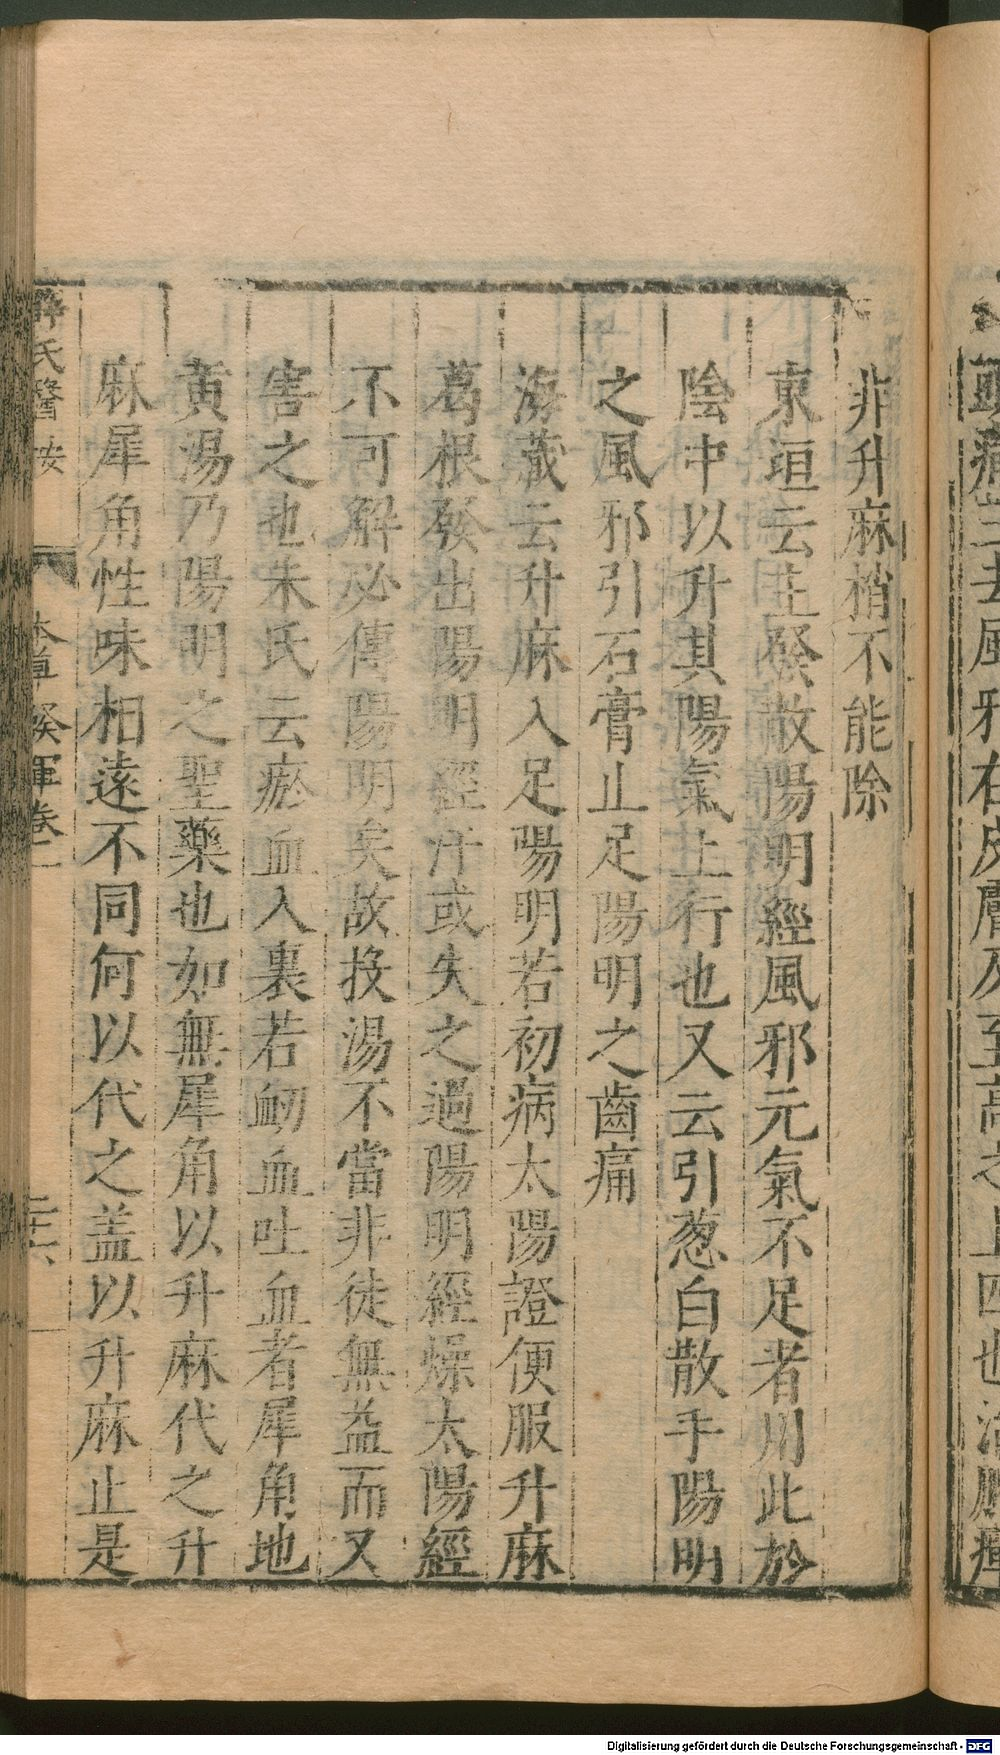 非升麻梢不能除
東垣云主發散陽明經風邪元氣不足者用此於
陰中以升其陽氣上行也又云引葱白散手陽明
之風邪引石膏止足陽明之齒痛
海藏云升麻入足陽明若初病太陽證便服升麻
葛根發出陽明經汗或失之過陽明經燥太陽經
不可解必傳陽明矣故投湯不當非徒無益而又
害之也朱氏云瘀血入裏若衂血吐血者犀角地
黄湯乃陽明之聖藥也如無犀角以升麻代之升
麻犀角性味相遠不同何以代之盖以升麻止是
薛氏醫按
本草發揮卷二
二十六
Digitalisierung gefördert durch die Deutsche Forschungsgemeinschaft - DFG